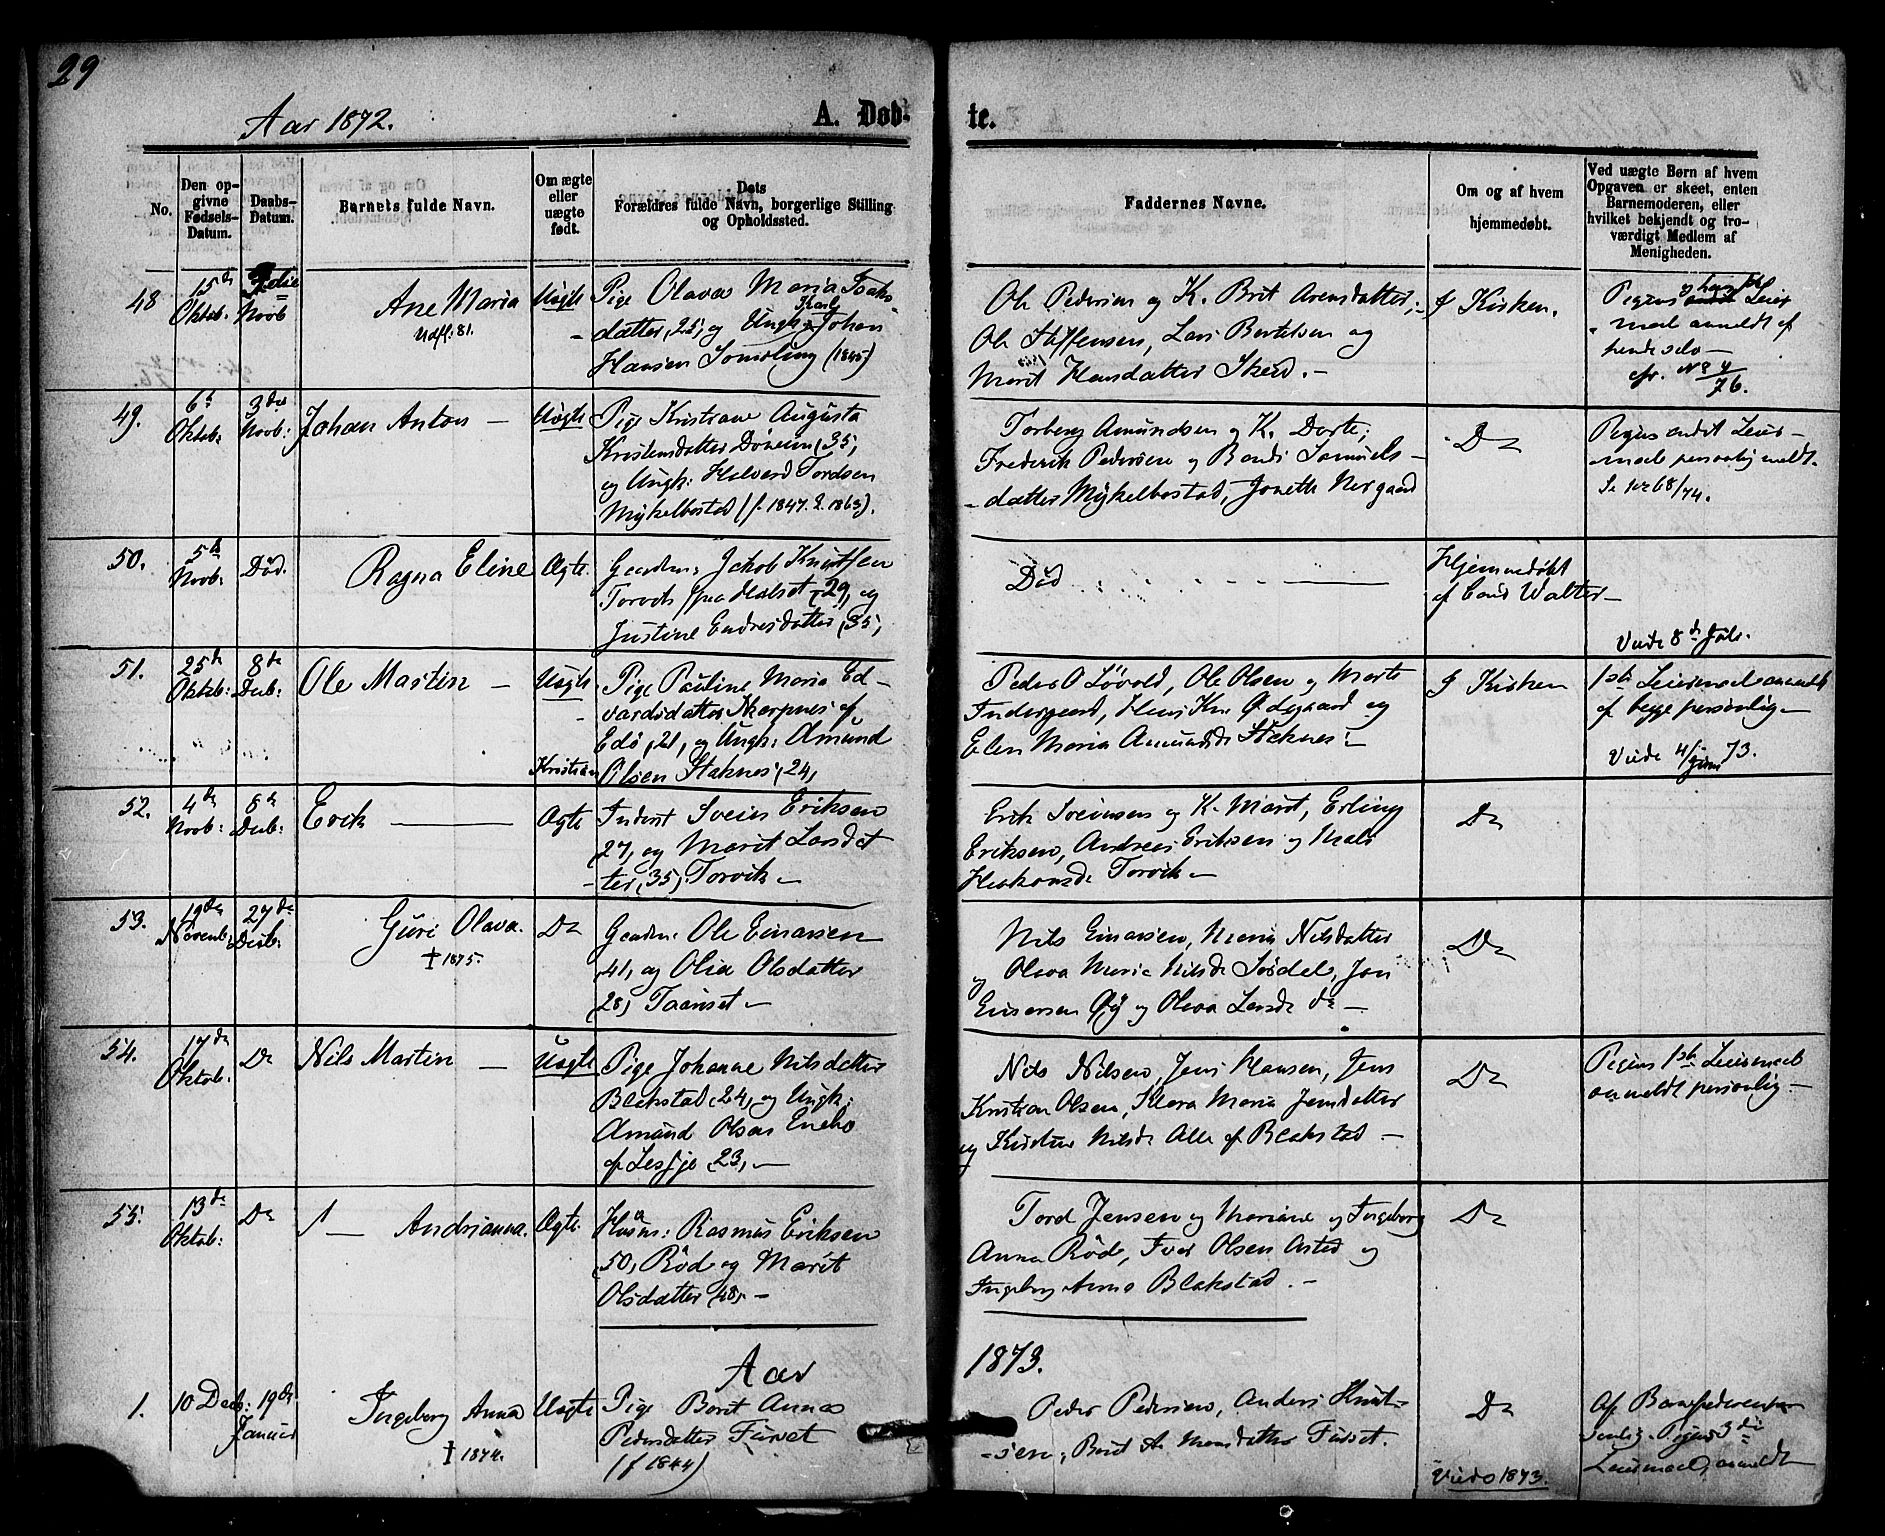 29
Aar 1872.
A. Døb-
te.
No.
Den op-
givne
Fødsels-
Datum.
Daabs-
Datum.
Barnets fulde Navn.
Om ægte
eller
uægte
født.
Dets
Forældres fulde Navn, borgerlige Stilling
og Opholdssted.
Faddernes Navne.
Om og af hvem
hjemmedøbt.
Ved uægte Børn af hvem
Opgaven er skeet, enten
Barnemoderen, eller
hvilket bekjendt og tro-
værdigt Medlem af
Menigheden.
48
15de
Oktob.
Novb
Ane Maria
Udfl. 81.
Uægte
Pige Olava Maria Isaks-
datter, 25, og Ungk: Karl Johan
Hansen (1845)
Ole Pedersen og K. Brit Arensdatter;
Ole Steffensen, Lars Bertelsen og
Marit Hansdatter
I Kirken.
Pigens Leier-
maal anmeldt af
hende selv —
cfr. No 4/76.
49.
6te
Oktob:
3die
Novb:
Johan Anton —
Uægte
Pige Kristiane Augusta
Kristensdatter 35,
og Ungk: Halvord Tordsen
Myklebostad (f. 1847. 1863).
Torberg Amundsen og K. Dorte;
Frederik Pedersen og Samuels-
datter Myklebostad, Nergaard
Do
Pigens andet Leier-
maal personlig meldt.
Se No 68/74.
50.
5te
Novb:
Død.
Ragna Eline
Ægte.
Gaardm: Jakob Knutsen
Torvik fra Halset, 29, og
Justine Endresdatter, 35,
Død
Hjemmedøbt
af Walter —
Viede 8de Juli.
51.
25de
Oktob:
8de
Decb:
Ole Martin —
Uægte
Pige Pauline Maria Ed-
vardsdatter Skarpnes af
Edø, 21, og Ungk: Amund
Kristian Olsen Staknes, 24,
Peder O Løvold, Ole Olsen og Marte
Indergaard, Hans Kr. Ødegaard og
Elen Maria Amundsd Staknes —
I Kirken
1ste Leiermaal anmeldt
af begge personlig —
Viede 4/ Juni 73.
52.
4de
Novb:
8de
Decb:
Erik —
Ægte
Inderst Svein Eriksen
27, og Marit Larsdat-
ter, 35, Torvik —
Erik Sveinsen og K. Marit, Erling
Eriksen, Andreas Eriksen og
Haakonsd Torvik —
Do
53.
19de
Novemb:
27de
Decb:
Guri Olava.
† 1875.
Do
Gaardm: Ole Einarsen
41, og Olia Olsdatter
28,
Nils Einarsen, Maria Nilsdatter
og Olava Marie Nilsd. Jon
Einarsen Øy og Olava Larsd do —
Do
54.
17de
Oktob:
Do
Nils Martin —
Uægte
Pige Johanne Nilsdatter
Blakstad, 24, og Ungk:
Amund Olsen Enebo
af Lesje 23, —
Nils Nilsen, Jens Hansen, Jens
Kristian Olsen, Klara Maria Jensdatter
og Nilsd. Alle af Blakstad —
Do
Pigens 1ste Leiermaal
anmeldt personlig —
55.
13de
Oktob:
Do
1 — Andrianna.
Ægte.
Husm: Rasmus Eriksen
50, Röd og Marit
Olsdatter, 48, —
Tord Jensen og Mariane og Ingeborg
Anna Röd, Iver Olsen og
Ingeborg Anna Blakstad. —
Do
Aar
1873.
1.
10 Decb:
19de
Januar
Ingeborg Anna
† 1874.
Uægte
Pige Borit Anna
Pedersdatter Furset
(f 1844)
Peder Pedersen, Anders Knut-
sen, Borit A. Furset.
Do
Viede 1873.
Af
Pigens 3die
Leiermaal, anmeldt